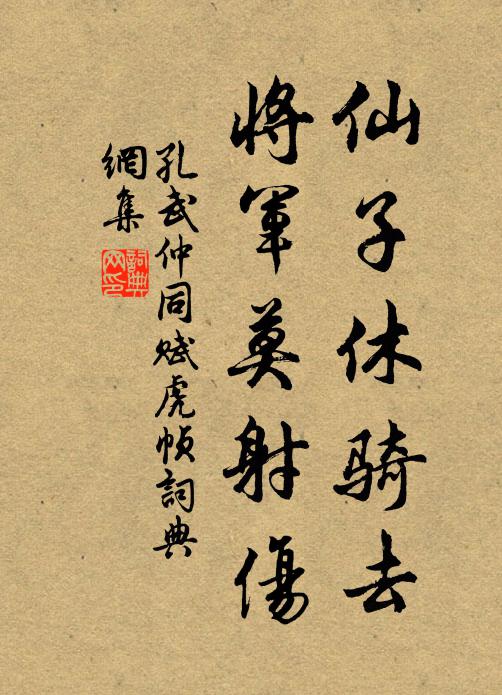 仙子休騎去
將軍莫射傷
孔武仲同賦虎幀詞典
網集
詞典
网印